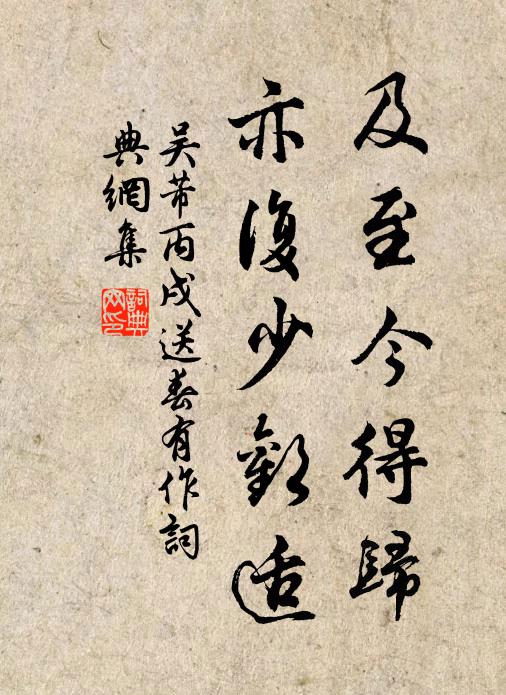 及至今得歸
亦復少歡適
吳芾丙戌送春有作詞
典網集
詞典
网印